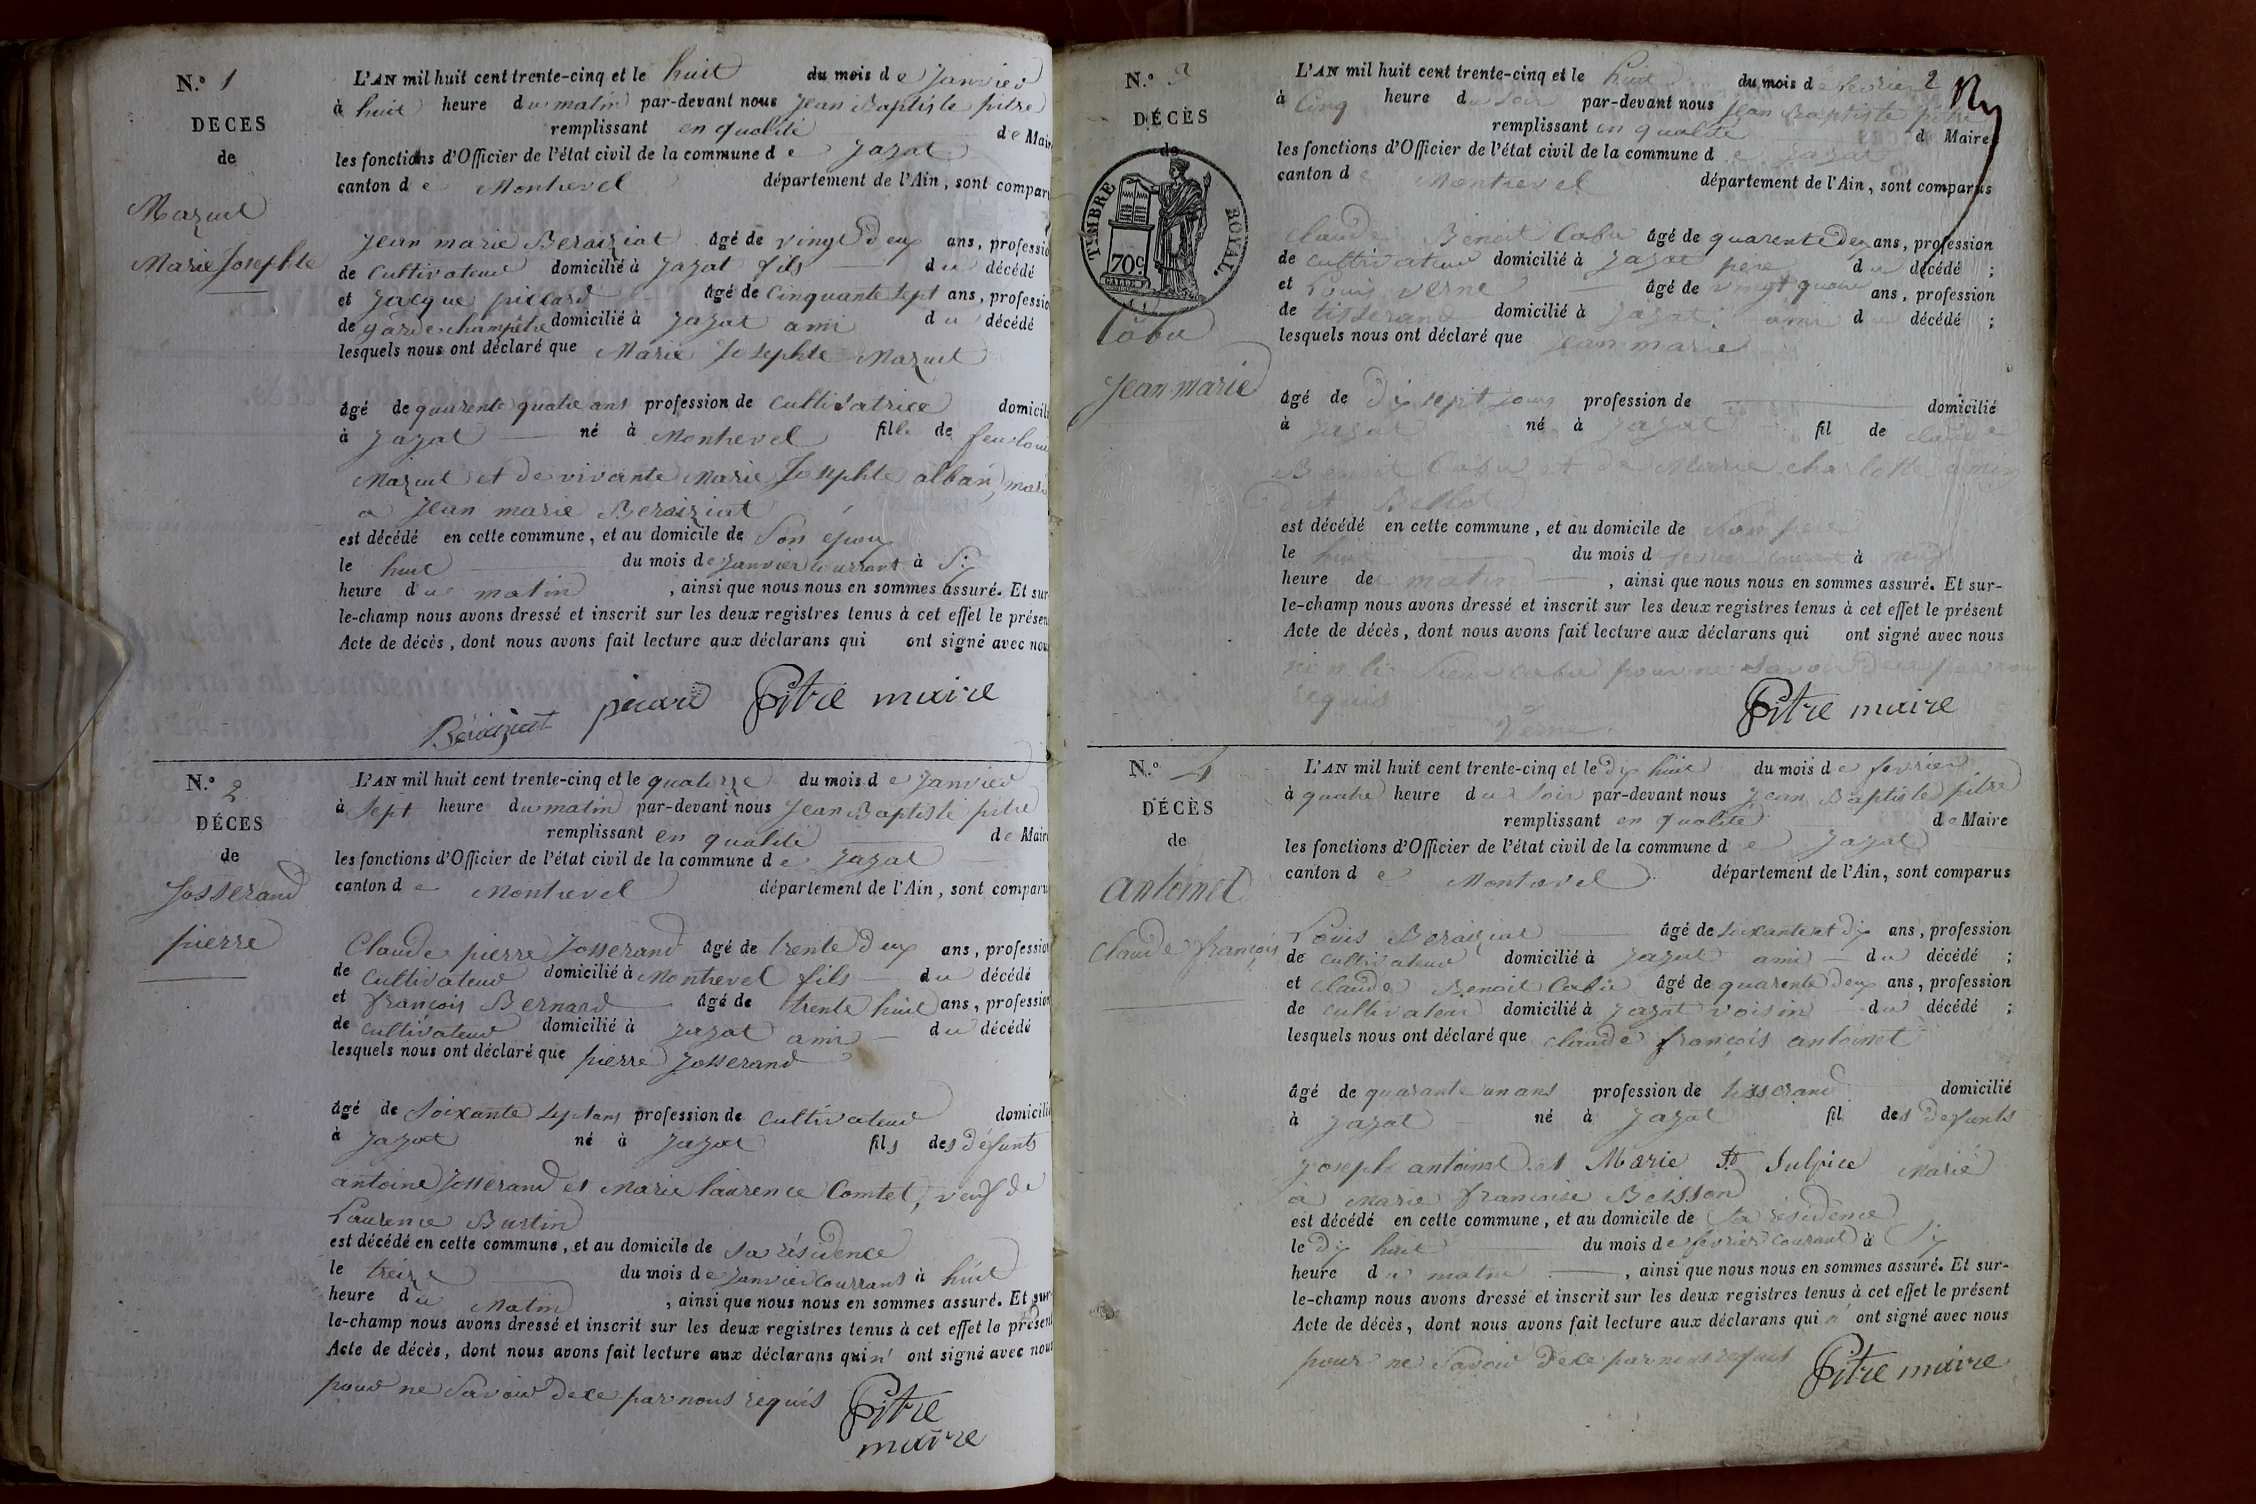 N.° 1
DECES
de
Mazuel
Marie Josephte
L'AN mil huit cent trente-cinq et le huit du mois de Janvier
à huit heure du matin par-devant nous Jean Baptiste pitre
remplissant en qualité de Maire
les fonctions d'Officier de l'état civil de la commune de Jazat
canton de Montrevel département de l'Ain, sont comparu
Jean marie Beraiziat âgé de vingt deux ans, professio
de Cultivateur domicilié à Jazat fils du décédé
et Jacque picard âgé de Cinquante sept ans, professio
de garde champêtre domicilié à Jazat ami du décédé
lesquels nous ont déclaré que Marie Josephte Mazuel
âgé de quarente quatre ans profession de Cultivatrice domicili
à Jazat né à Montrevel fille de feu loui
Mazuel et de vivante Marie Josephte alban, mari
a Jean marie Beraiziat
est décédé en cette commune, et au domicile de Son époux
le huit du mois de Janvier courrant à Six
heure du matin, ainsi que nous nous en sommes assuré. Et sur-
le-champ nous avons dressé et inscrit sur les deux registres tenus à cet effet le présen
Acte de décès, dont nous avons fait lecture aux déclarans qui ont signé avec nous
Béraiziat picard Pitre maire
N.° 2
DÉCES
de
Josserand
pierre
L'AN mil huit cent trente-cinq et le quatorze du mois de Janvier
à Sept heure du matin par-devant nous Jean Baptiste pitre
remplissant en qualité de Maire
les fonctions d'Officier de l'état civil de la commune de Jazat
canton de Montrevel département de l'Ain, sont comparu
Claude pierre Josserand âgé de trente deux ans, profession
de Cultivateur domicilié à Montrevel fils du décédé
et françois Bernard âgé de trente huit ans, profession
de Cultivateur domicilié à Jazat ami du décédé
lesquels nous ont déclaré que pierre Josserand
âgé de Soixante sept ans profession de Cultivateur domicili
à Jazat né à Jazat fils des défunts
antoine Josserand et Marie laurence Comtet, veuf de
Laurence Burtin
est décédé en cette commune, et au domicile de Sa résidence
le treize du mois de Janvier courrant à huit
heure du Matin, ainsi que nous nous en sommes assuré. Et sur-
le-champ nous avons dressé et inscrit sur les deux registres tenus à cet effet le présen
Acte de décès, dont nous avons fait lecture aux déclarans qui n' ont signé avec nous
pour ne Savoir dece par nous requis Pitre
maire
N.° 3
DÉCÈS
de
TIMBRE ROYAL.
70c
Cabu
Jean marie
2
L'AN mil huit cent trente-cinq et le huit du mois de fevrier
à Cinq heure du soir par-devant nous Jean Baptiste pitre
remplissant en qualité de Maire
les fonctions d'Officier de l'état civil de la commune de Jazat
canton de Montrevel département de l'Ain, sont comparus
Claude Benoit Cabu âgé de quarente deux ans, profession
de cultivateur domicilié à Jazat père du décédé ;
et Louis verne âgé de vingt quatre ans, profession
de tisserand domicilié à Jazat ami du décédé ;
lesquels nous ont déclaré que Jean marie
âgé de Dix sept jours profession de domicilié
à Jazat né à Jazat fil de claude
Benoit Cabu et de Marie charlotte
est décédé en cette commune, et au domicile de Son pere
le huit du mois de fevrier courant à neuf
heure de matin, ainsi que nous nous en sommes assuré. Et sur-
le-champ nous avons dressé et inscrit sur les deux registres tenus à cet effet le présent
Acte de décès, dont nous avons fait lecture aux déclarans qui ont signé avec nous
non le Sieur cabu pour ne Savoir dece par nous
requis
Verne Pitre maire
N.° 4
DÉCÈS
de
antoinet
Claude françois
L'AN mil huit cent trente-cinq et le Dix huit du mois de fevrier
à quatre heure du Soir par-devant nous Jean Baptiste pitre
remplissant en qualité de Maire
les fonctions d'Officier de l'état civil de la commune de Jazat
canton de Montrevel département de l'Ain, sont comparus
Louis Beraiziat âgé de Soixante et dix ans, profession
de cultivateur domicilié à Jazat ami du décédé ;
et Claude Benoit Cabu âgé de quarente deux ans, profession
de cultivateur domicilié à Jazat voisin du décédé ;
lesquels nous ont déclaré que claude françois antoinet
âgé de quarante un ans profession de tisserand domicilié
à Jazat né à Jazat fil des défunts
Joseph antoinet et Marie St Sulpice Marié
à Marie francoise Boisson
est décédé en cette commune, et au domicile de Sa résidence
le Dix huit du mois de fevrier Courant à Six
heure du matin, ainsi que nous nous en sommes assuré. Et sur-
le-champ nous avons dressé et inscrit sur les deux registres tenus à cet effet le présent
Acte de décès, dont nous avons fait lecture aux déclarans qui n' ont signé avec nous
pour ne Savoir dece par nous requis Pitre maire